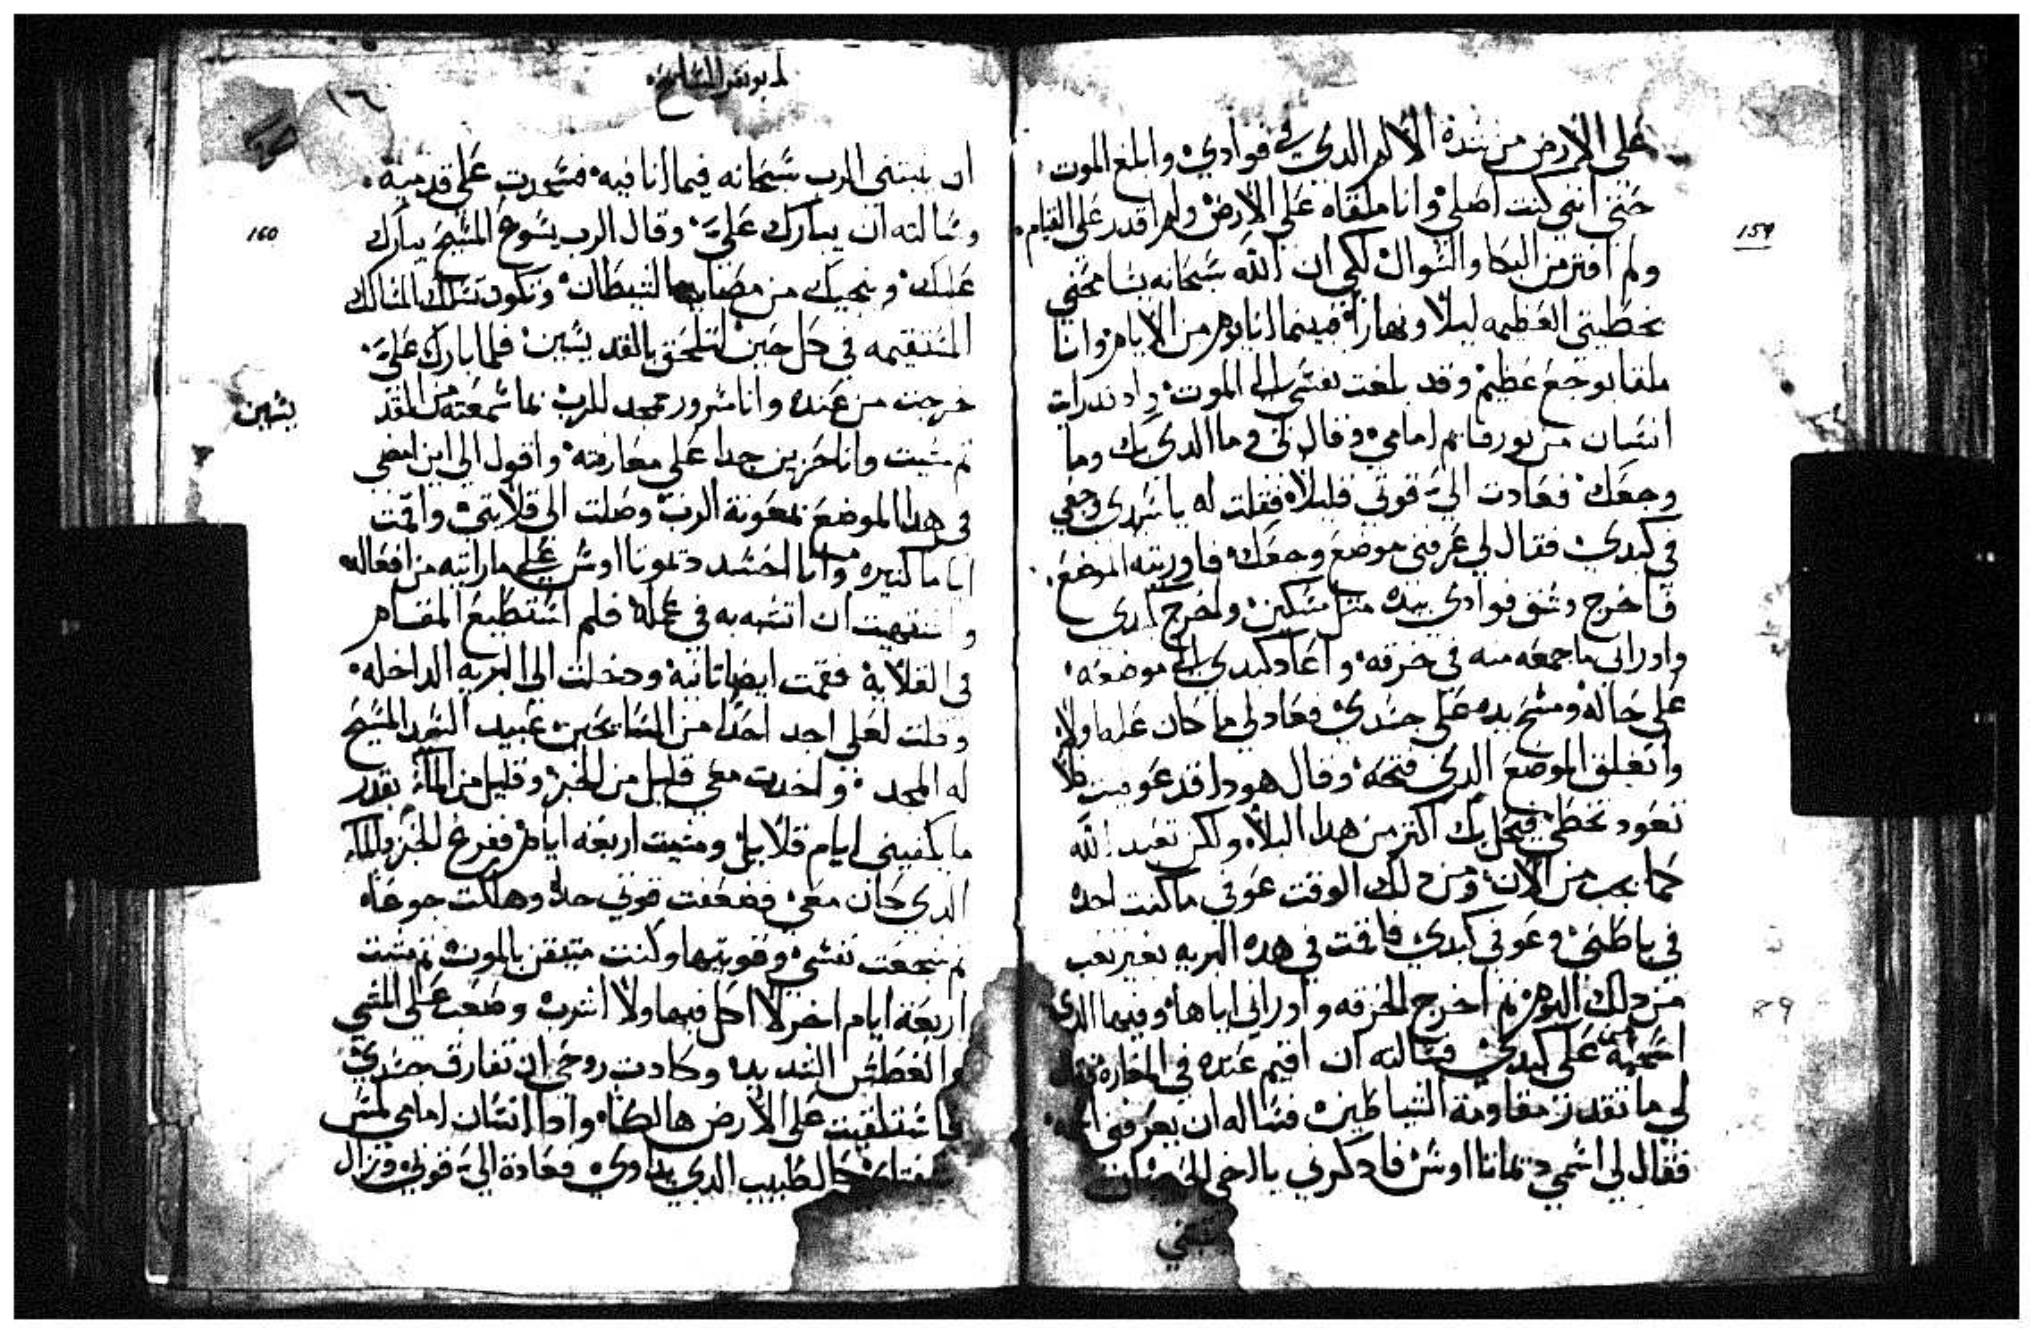 159
على الارض من شدة الالم الدي في فوادي وابلغ الموت
حتي انني كنت اصلي وانا ملقاه على الارض ولم اقدر على القيام
ولم افتر من البكا والسوال لكي ان الله سبحانه يسامحني
بخطيتي العظيمه ليلا ونهارا فبينما انا يوم من الايام وانا
ملقا بوجع عظيم وقد بلغت نفسي الي الموت واد ندرات
انسان من نور قايم امامي وقال لي وما الدي بك وما
وجعك فعادت الي قوتي قليلا فقلت له يا سيدي وجعي
في كبدي فقال لي عرفني موضع وجعك فاوريته الموضع
فاخرج وشق فوادي بيده مثل سكين واخرج كبدي
واوراني ما جمعه منه في خرقه واعاد كبدي الي موضعه
على حاله ومسح بيده على جسدي فعاد لي ما كان عليه اولا
وانغلق الموضع الدي فتحه وقال هودا قد عوفيت فلا
تعود تخطي فيحل بك اكتر من هدا البلا ولكن تعبد الله
كما يجب من الان ومن دلك الوقت عوفي ما كنت اجده
في باطني وعوفي كبدي فاقمت في هده البريه بغير تعب
من دلك اليوم تم اخرج الخرقه واوراني اياها وفيها الدي
على كبدي فسالته ان اقيم عنده في المغارة فقال
لي ما تقدر مقاومة الشياطين فساله ان يعرفني اسمه
فقال لي اسمي ديماتااوس فادكرني يا اخي الحبيب
يثبتني
١٦٠
160
ان يثبتني الرب سبحانه فيما انا فيه فسجدت على قدميه
وسالته ان يبارك علي وقال الرب يسوع المسيح يبارك
عليك وينجيك من مصايد الشيطان وتكون تسلك المسالك
المستقيمه في كل حين لتلحق بالقديسين فلما بارك علي
خرجت من عنده وانا مسرور ممجد للرب بما سمعته من القد
يسين
تم مشيت وانا حزين جدا على مفارقته واقول الي اين امضي
في هدا الموضع بمعونة الرب وصلت الى قلايتي واقمت
اياما كتيره وانا احسد ديموتااوس على ما رايته من افعاله
واشتهيت ان اتشبه به في عمله فلم استطيع المقام
في القلايه فقمت ايضا تانية ودخلت الى البريه الداخله
وقلت لعلي اجد احدا من السايحين عبيد السيد المسيح
له المجد واخدت معي قليل من الخبز وقليل من الما بقدر
ما يكفيني ايام قلايل ومشيت اربعه ايام ففرغ الخبز والما
الدي كان معي فضعفت قوتي جدا وهلكت جوعا
تم شجعت نفسي وقويتها وكنت متيقن بالموت تم مشيت
اربعة ايام اخر لا اكل فيها ولا اشرب وصعب علي المشي
والعطش الشديد وكادت روحي ان تفارق جسدي
فاستلقيت على الارض وادا انسان امامي لمس
شفتاي كالطبيب الدي يداوي فعادة الي قوتي وزال